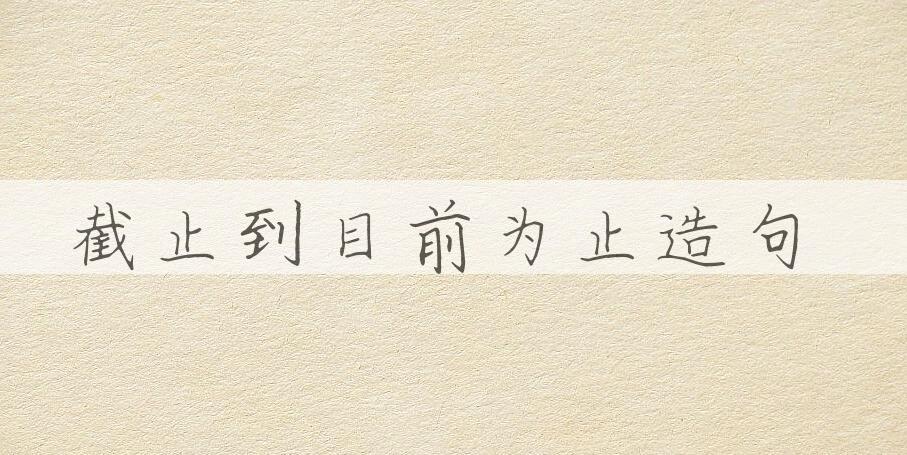 截止到目前为止造句